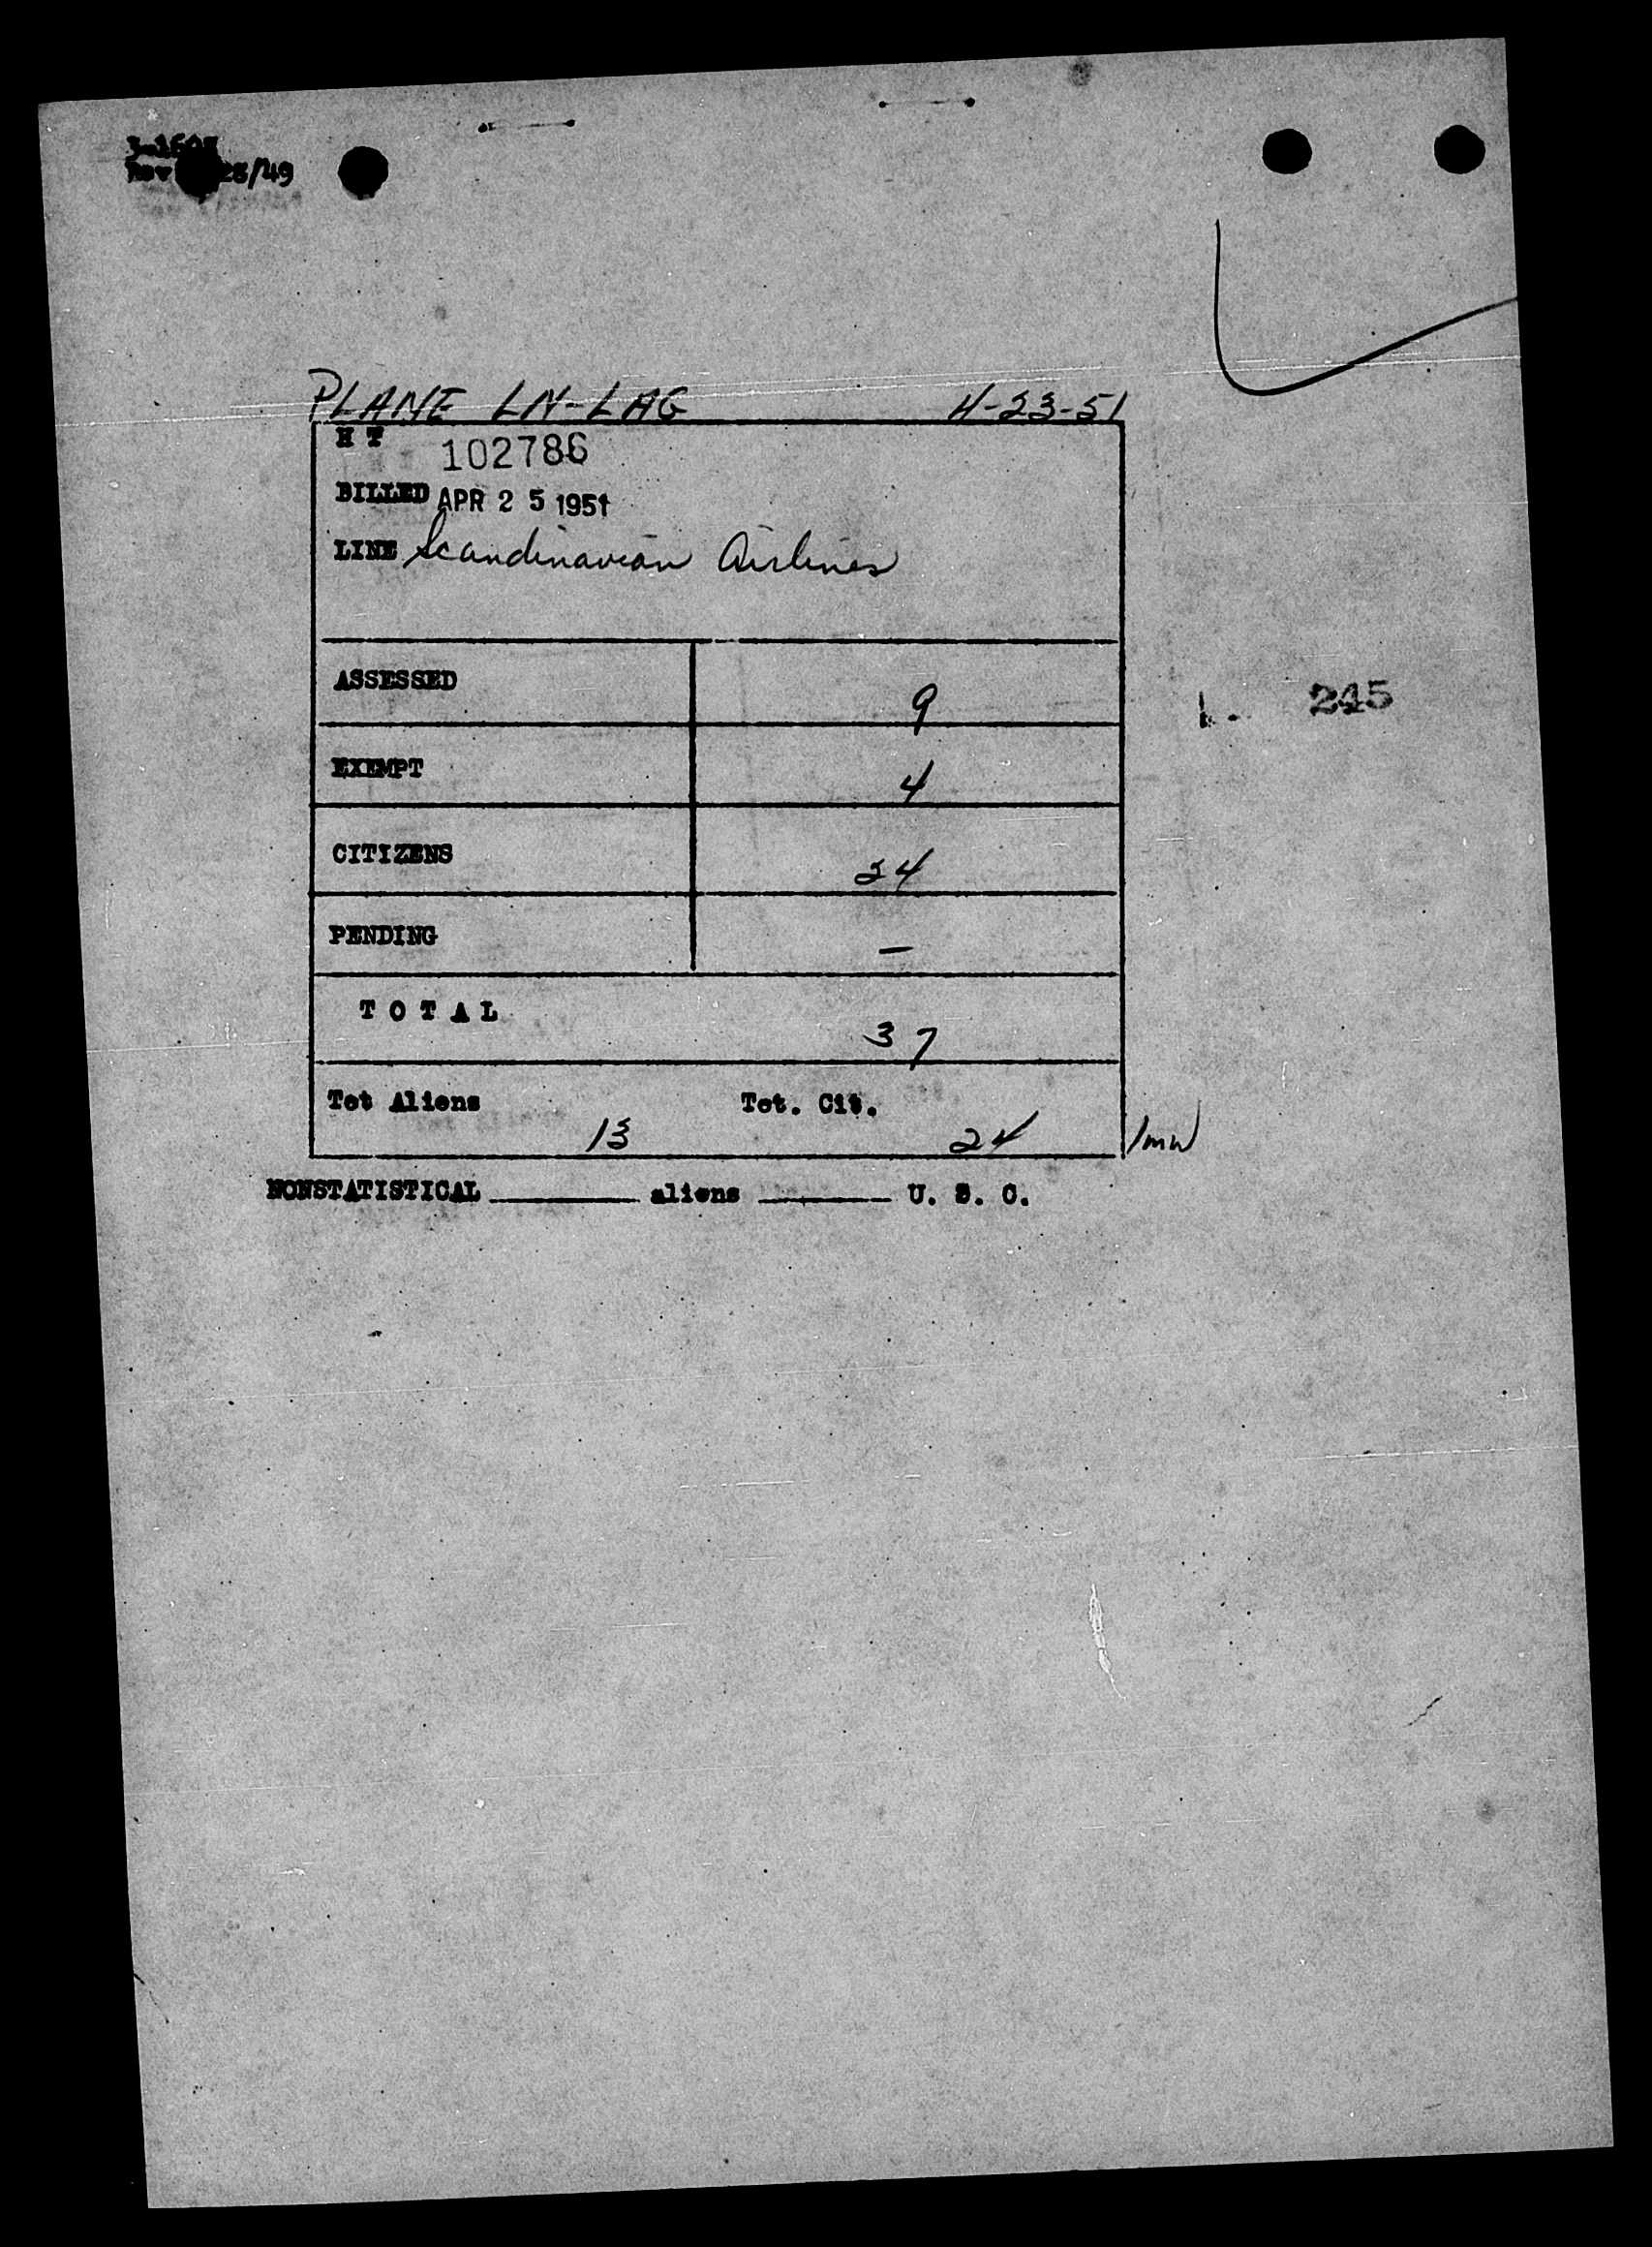 Rev 28/49
PLANE LN-LAG 4-23-51
H T 102786
BILLED APR 25 1951
LINE Scandinavian Airlines
ASSESSED 9
EXEMPT 4
CITIZENS 24
PENDING —
245
T O T A L 37
Tot Aliens 13 Tot. Cit. 24 /mw
NONSTATISTICAL ______ aliens ______ U. S. C.